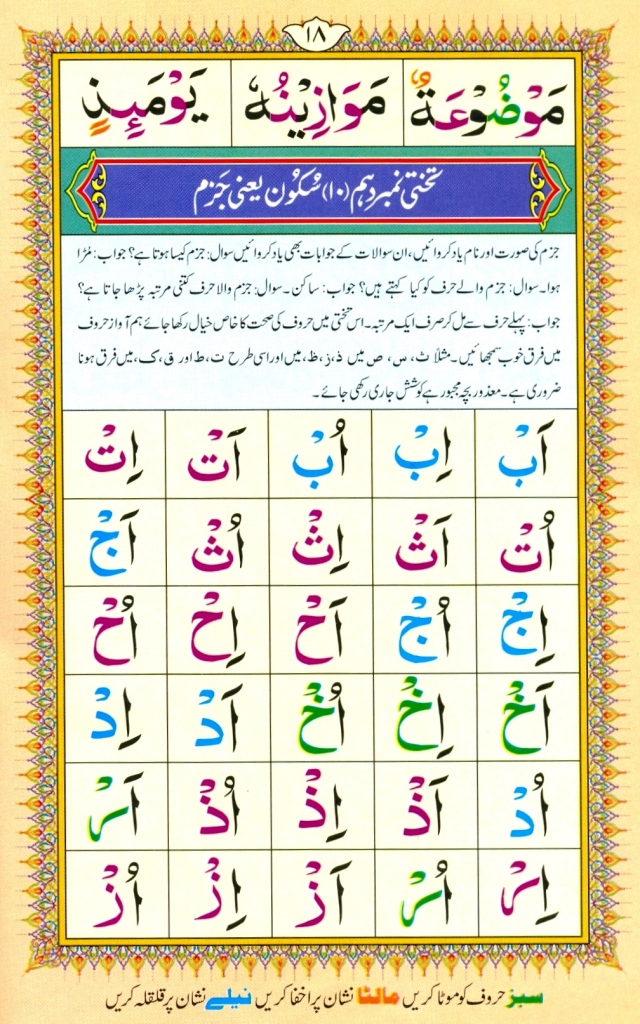 ۱۸
مَوْضُوْعَةٌ مَوَازِيْنُهٗ يَوْمَئِذٍ
تختی نمبر دہم (۱۰) سُکُون یعنی جَزم
جزم کی صورت اور نام یاد کروائیں، ان سوالات کے جوابات بھی یاد کروائیں سوال: جزم کیسا ہوتا ہے؟ جواب: مُڑا
ہوا۔ سوال: جزم والے حرف کو کیا کہتے ہیں؟ جواب: ساکن۔ سوال: جزم والا حرف کتنی مرتبہ پڑھا جاتا ہے؟
جواب: پہلے حرف سے مل کر صرف ایک مرتبہ۔ اس تختی میں حروف کی صحت کا خاص خیال رکھا جائے ہم آواز حروف
میں فرق خوب سمجھائیں۔ مثلاً ث، س، ص میں ذ، ز، ظ، میں اور اسی طرح ت، ط اور ق، ک، میں فرق ہونا
ضروری ہے۔ معذور بچہ مجبور ہے کوشش جاری رکھی جائے۔
اَبْ اِبْ اُبْ اَتْ اِتْ
اُتْ اَثْ اِثْ اُثْ اَجْ
اِجْ اُجْ اَحْ اِحْ اُحْ
اَخْ اِخْ اُخْ اَدْ اِدْ
اُدْ اَذْ اِذْ اُذْ اَرْ
اِرْ اُرْ اَزْ اِزْ اُزْ
سبز حروف کو موٹا کریں مالٹا نشان پر اخفا کریں نیلے نشان پر قلقلہ کریں